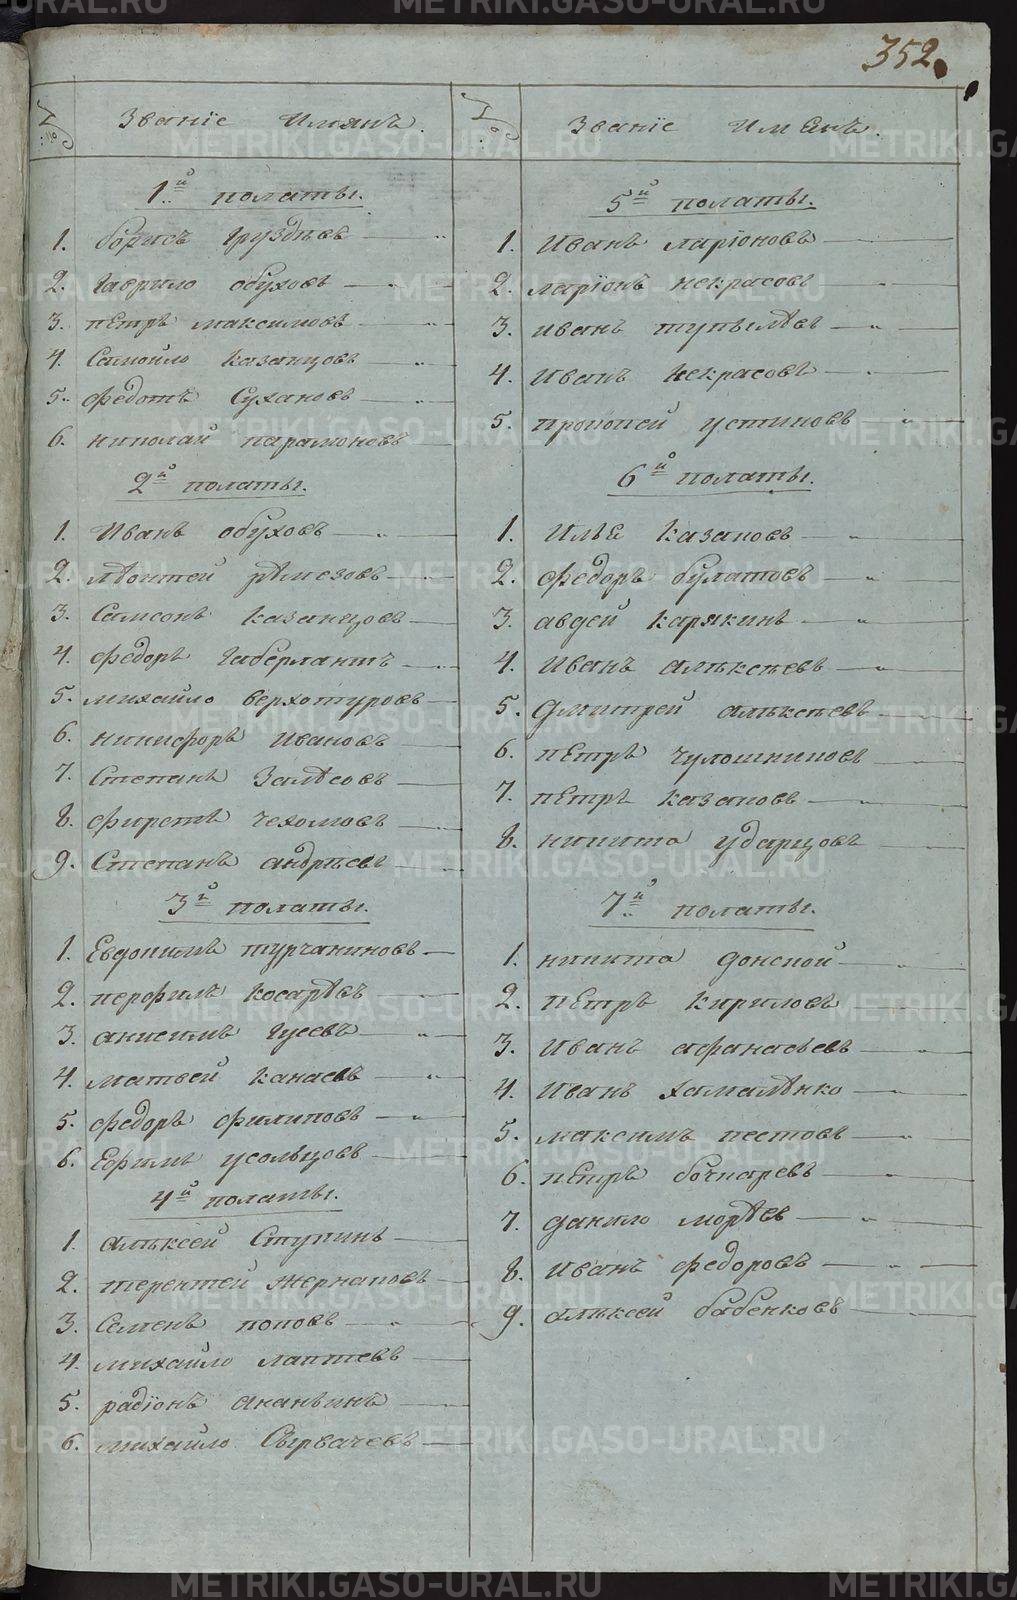 352.
№ Званіе Имянъ.
1й полаты.
1. борисъ Груздѣвъ
2. Гаврило обуховъ
3. пЕтръ максимовъ
4. Самойло Казанцовъ
5. федотъ Сухановъ
6. николай парамоновъ
2й полаты.
1. Иванъ обуховъ
2. лѣонтей рѣмезовъ
3. Самсонъ казанцовъ
4. федоръ Габерлантъ
5. михайло верхотуровъ
6. никифоръ Ивановъ
7. Степанъ Залѣсовъ
8. фирстъ чехомовъ
9. Степанъ андрѣевъ
3й полаты.
1. Евдокимъ турчаниновъ
2. перфилъ косарѣвъ
3. анисимъ Гусевъ
4. матвей канаевъ
5. федоръ филиповъ
6. Ефимъ усольцовъ
4й полаты.
1. алѣксей Ступинъ
2. терентей жернаковъ
3. Семенъ поповъ
4. михайло лаптевъ
5. радіонъ Ананьинъ
6. михайло Сырвачевъ
№ Званіе ИмЕнъ.
5й полаты.
1. Иванъ ларіоновъ
2. ларіонъ некрасовъ
3. иванъ тупылѣвъ
4. Иванъ некрасовъ
5. прокопей устиновъ
6й полаты.
1. Илья казаковъ
2. федоръ булатовъ
3. авдей карякинъ
4. Иванъ алѣксѣевъ
5. дмитрей алѣксѣевъ
6. пЕтръ чулошниковъ
7. пЕтръ казаковъ
8. никита ударцовъ
7й полаты.
1. никита донской
2. пЕтръ кириловъ
3. Иванъ афанасьевъ
4. Иванъ хамалѣнко
5. максимъ пестовъ
6. пЕтръ бочкаревъ
7. данило морѣев
8. Иванъ федоровъ
9. алѣксей бабенковъ
METRIKI.GASO-URAL.RU